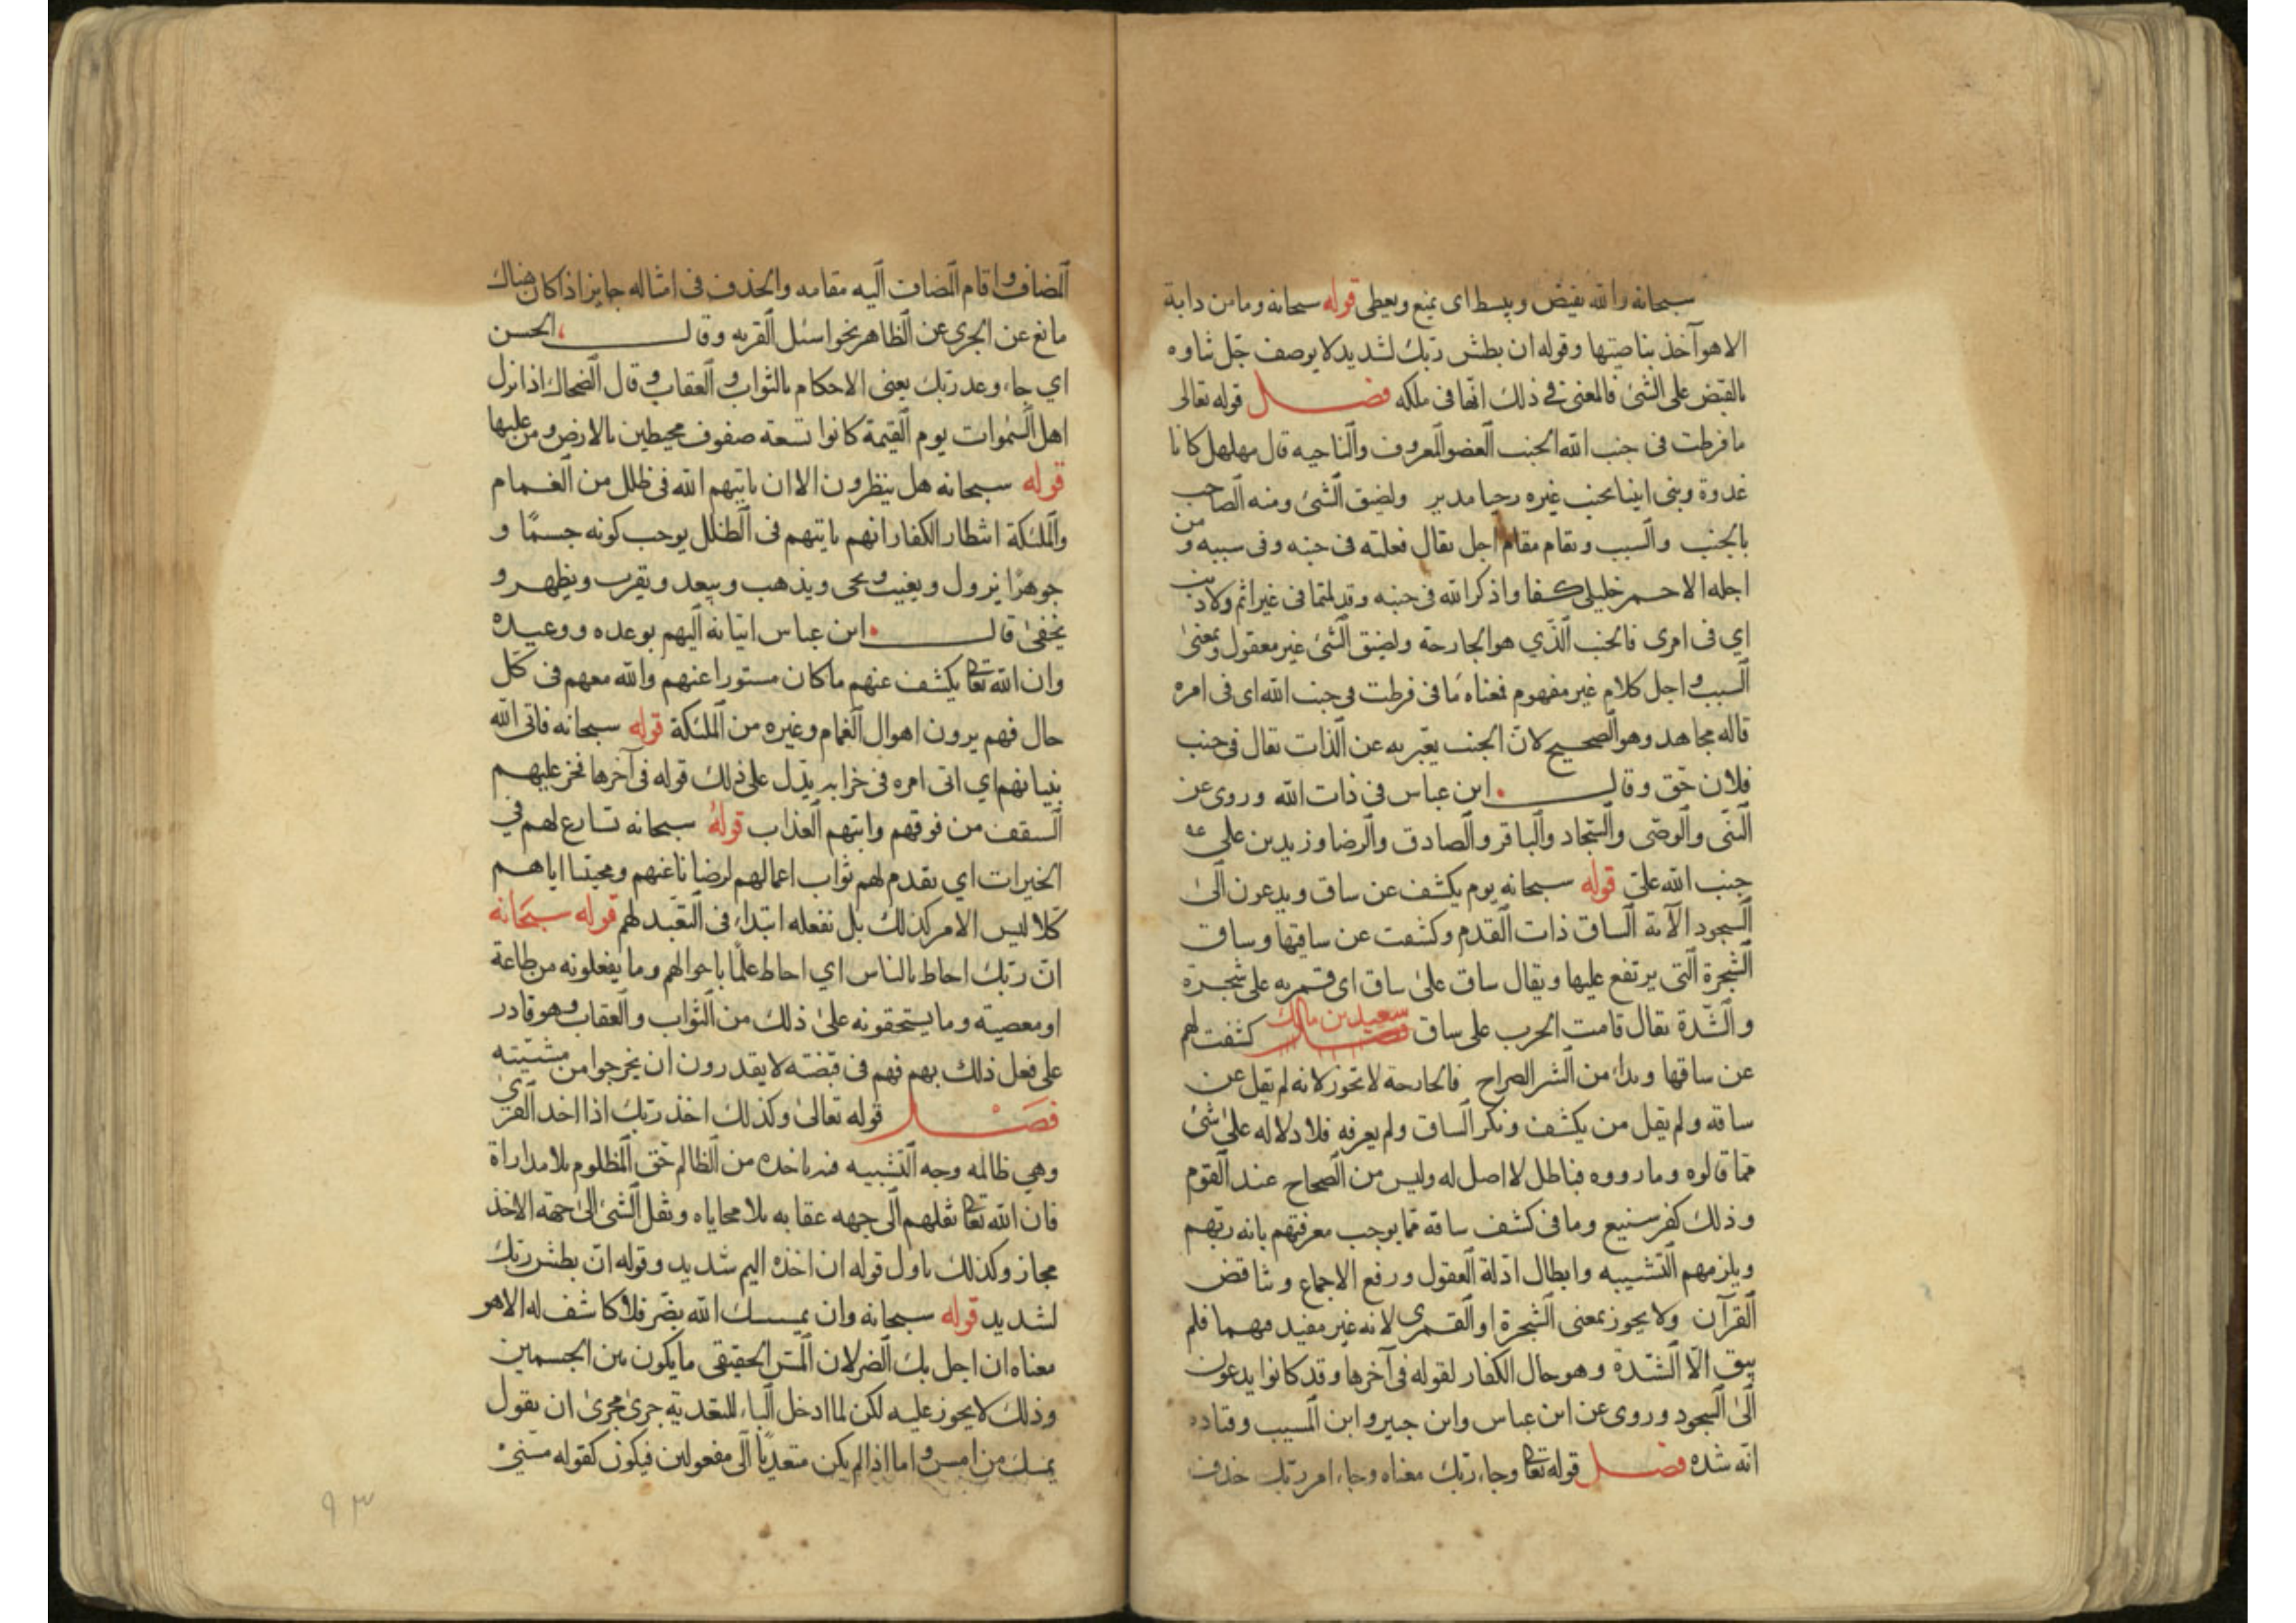 سبحانه والله يقبض ويبسط اى يمنع ويعطى قوله سبحانه وما من دابة
الا هو آخذ بناصيتها وقوله ان بطش ربك لشديد لا يوصف جل ثناوه
بالقبض على الشئ فالمعنى في ذلك انها فى ملكه فصل قوله تعالى
ما فرطت فى جنب الله الجنب العضو المعروف والناحيه قال مهلهل كانا
غدوة وبنى ابينا بجنب غيره رحيا مدير ولضيق الشئ ومنه الصاحب
بالجنب والسبب ويقام مقام اجل يقال فعلته فى جنبه وفى سببه ومن
اجله الاحمر خليلى كفا واذكرا الله فى جنبه وقد لمتما فى غير اثم ولا ذنب
اي فى امرى فالجنب الذي هو الجارحة ولضيق الشئ غير معقول وبمعنى
السبب واجل كلام غير مفهوم فمعناه ما فى فرطت فى جنب الله اى فى امره
قاله مجاهد وهو الصحيح لان الجنب يعبر به عن الذات يقال فى جنب
فلان حق وقال ابن عباس فى ذات الله وروى عن
النبى والوصى والسجاد والباقر والصادق والرضا وزيد بن على عه
جنب الله على قوله سبحانه يوم يكشف عن ساق ويدعون الى
السجود الآية الساق ذات القدم وكشفت عن ساقيها وساق
الشجرة التى يرتفع عليها ويقال ساق على ساق اى قمريه على شجرة
والشدة يقال قامت الحرب على ساق سعيد بن مالك كشفت لهم
عن ساقها وبداء من الشر الصراح فالجارحة لا تجوز لانه لم يقل عن
ساقه ولم يقل من يكشف ونكر الساق ولم يعرفه فلا دلاله على شئ
مما قالوه وما رووه فباطل لا اصل له وليس من الصحاح عند القوم
وذلك كفر شنيع وما فى كشف ساقه مما يوجب معرفتهم بانه ربهم
ويلزمهم التشبيه وابطال ادلة العقول ورفع الاجماع وتناقض
القرآن ولا يجوز بمعنى الشجرة او القمرى لانه غير مفيد مهما فلم
يبق الا الشدة وهو حال الكفار لقوله فى آخرها وقد كانوا يدعون
الى السجود وروى عن ابن عباس وابن جبير وابن المسيب وقتاده
انه شده فصل قوله تعا وجاء ربك معناه وجاء امر ربك حذف
المضاف واقام المضاف اليه مقامه والحذف فى امثاله جايز اذا كان هناك
مانع عن الجرى عن الظاهر نحو اسئل القريه وقال الحسن
اي جاء وعد ربك يعنى الاحكام بالثواب والعقاب وقال الضحاك اذا نزل
اهل السموات يوم القيمة كانوا تسعة صفوف محيطين بالارض ومن عليها
قوله سبحانه هل ينظرون الا ان ياتيهم الله فى ظلل من الغمام
والملئكة انتظار الكفار انهم ياتيهم فى الظلل يوجب كونه جسما و
جوهرا يزول ويغيب ويحى ويذهب ويبعد ويقرب ويظهر و
يخفى قال ابن عباس اتيانه اليهم بوعده ووعيده
وان الله تعا يكشف عنهم ما كان مستورا عنهم والله معهم فى كل
حال فهم يرون اهوال الغمام وغيره من الملئكة قوله سبحانه فاتى الله
بنيانهم اي اتى امره فى خرابه يدل على ذلك قوله فى آخرها فخر عليهم
السقف من فوقهم واتيهم العذاب قوله سبحانه نسارع لهم في
الخيرات اي نقدم لهم ثواب اعمالهم لرضانا عنهم ومحبتنا اياهم
كلا ليس الامر كذلك بل نفعله ابتداء فى التعبد لهم قوله سبحانه
ان ربك احاط بالناس اي احاط علما باحوالهم وما يفعلونه من طاعة
او معصية وما يستحقونه على ذلك من الثواب والعقاب وهو قادر
على فعل ذلك بهم فهم فى قبضته لا يقدرون ان يخرجوا من مشيته
فصل قوله تعالى وكذلك اخذ ربك اذا اخذ القرى
وهي ظالمه وجه التشبيه فيه ياخذه من الظالم حق المظلوم بلا مداراة
فان الله تعا نقلهم الى جهه عقابه بلا محاباه ونقل الشئ الى جهة الاخذ
مجاز وكذلك ياول قوله ان اخذه اليم شديد وقوله ان بطش ربك
لشديد قوله سبحانه وان يمسسك الله بضر فلا كاشف له الا هو
معناه ان احل بك الضر لان المس الحقيقى ما يكون بين الجسمين
وذلك لا يجوز عليه لكن لما ادخل الباء للتعدية جرى مجرى ان يقول
يمسك من امس واما اذا لم يكن متعديا الى مفعولين فيكون كقوله مسني
٩٣